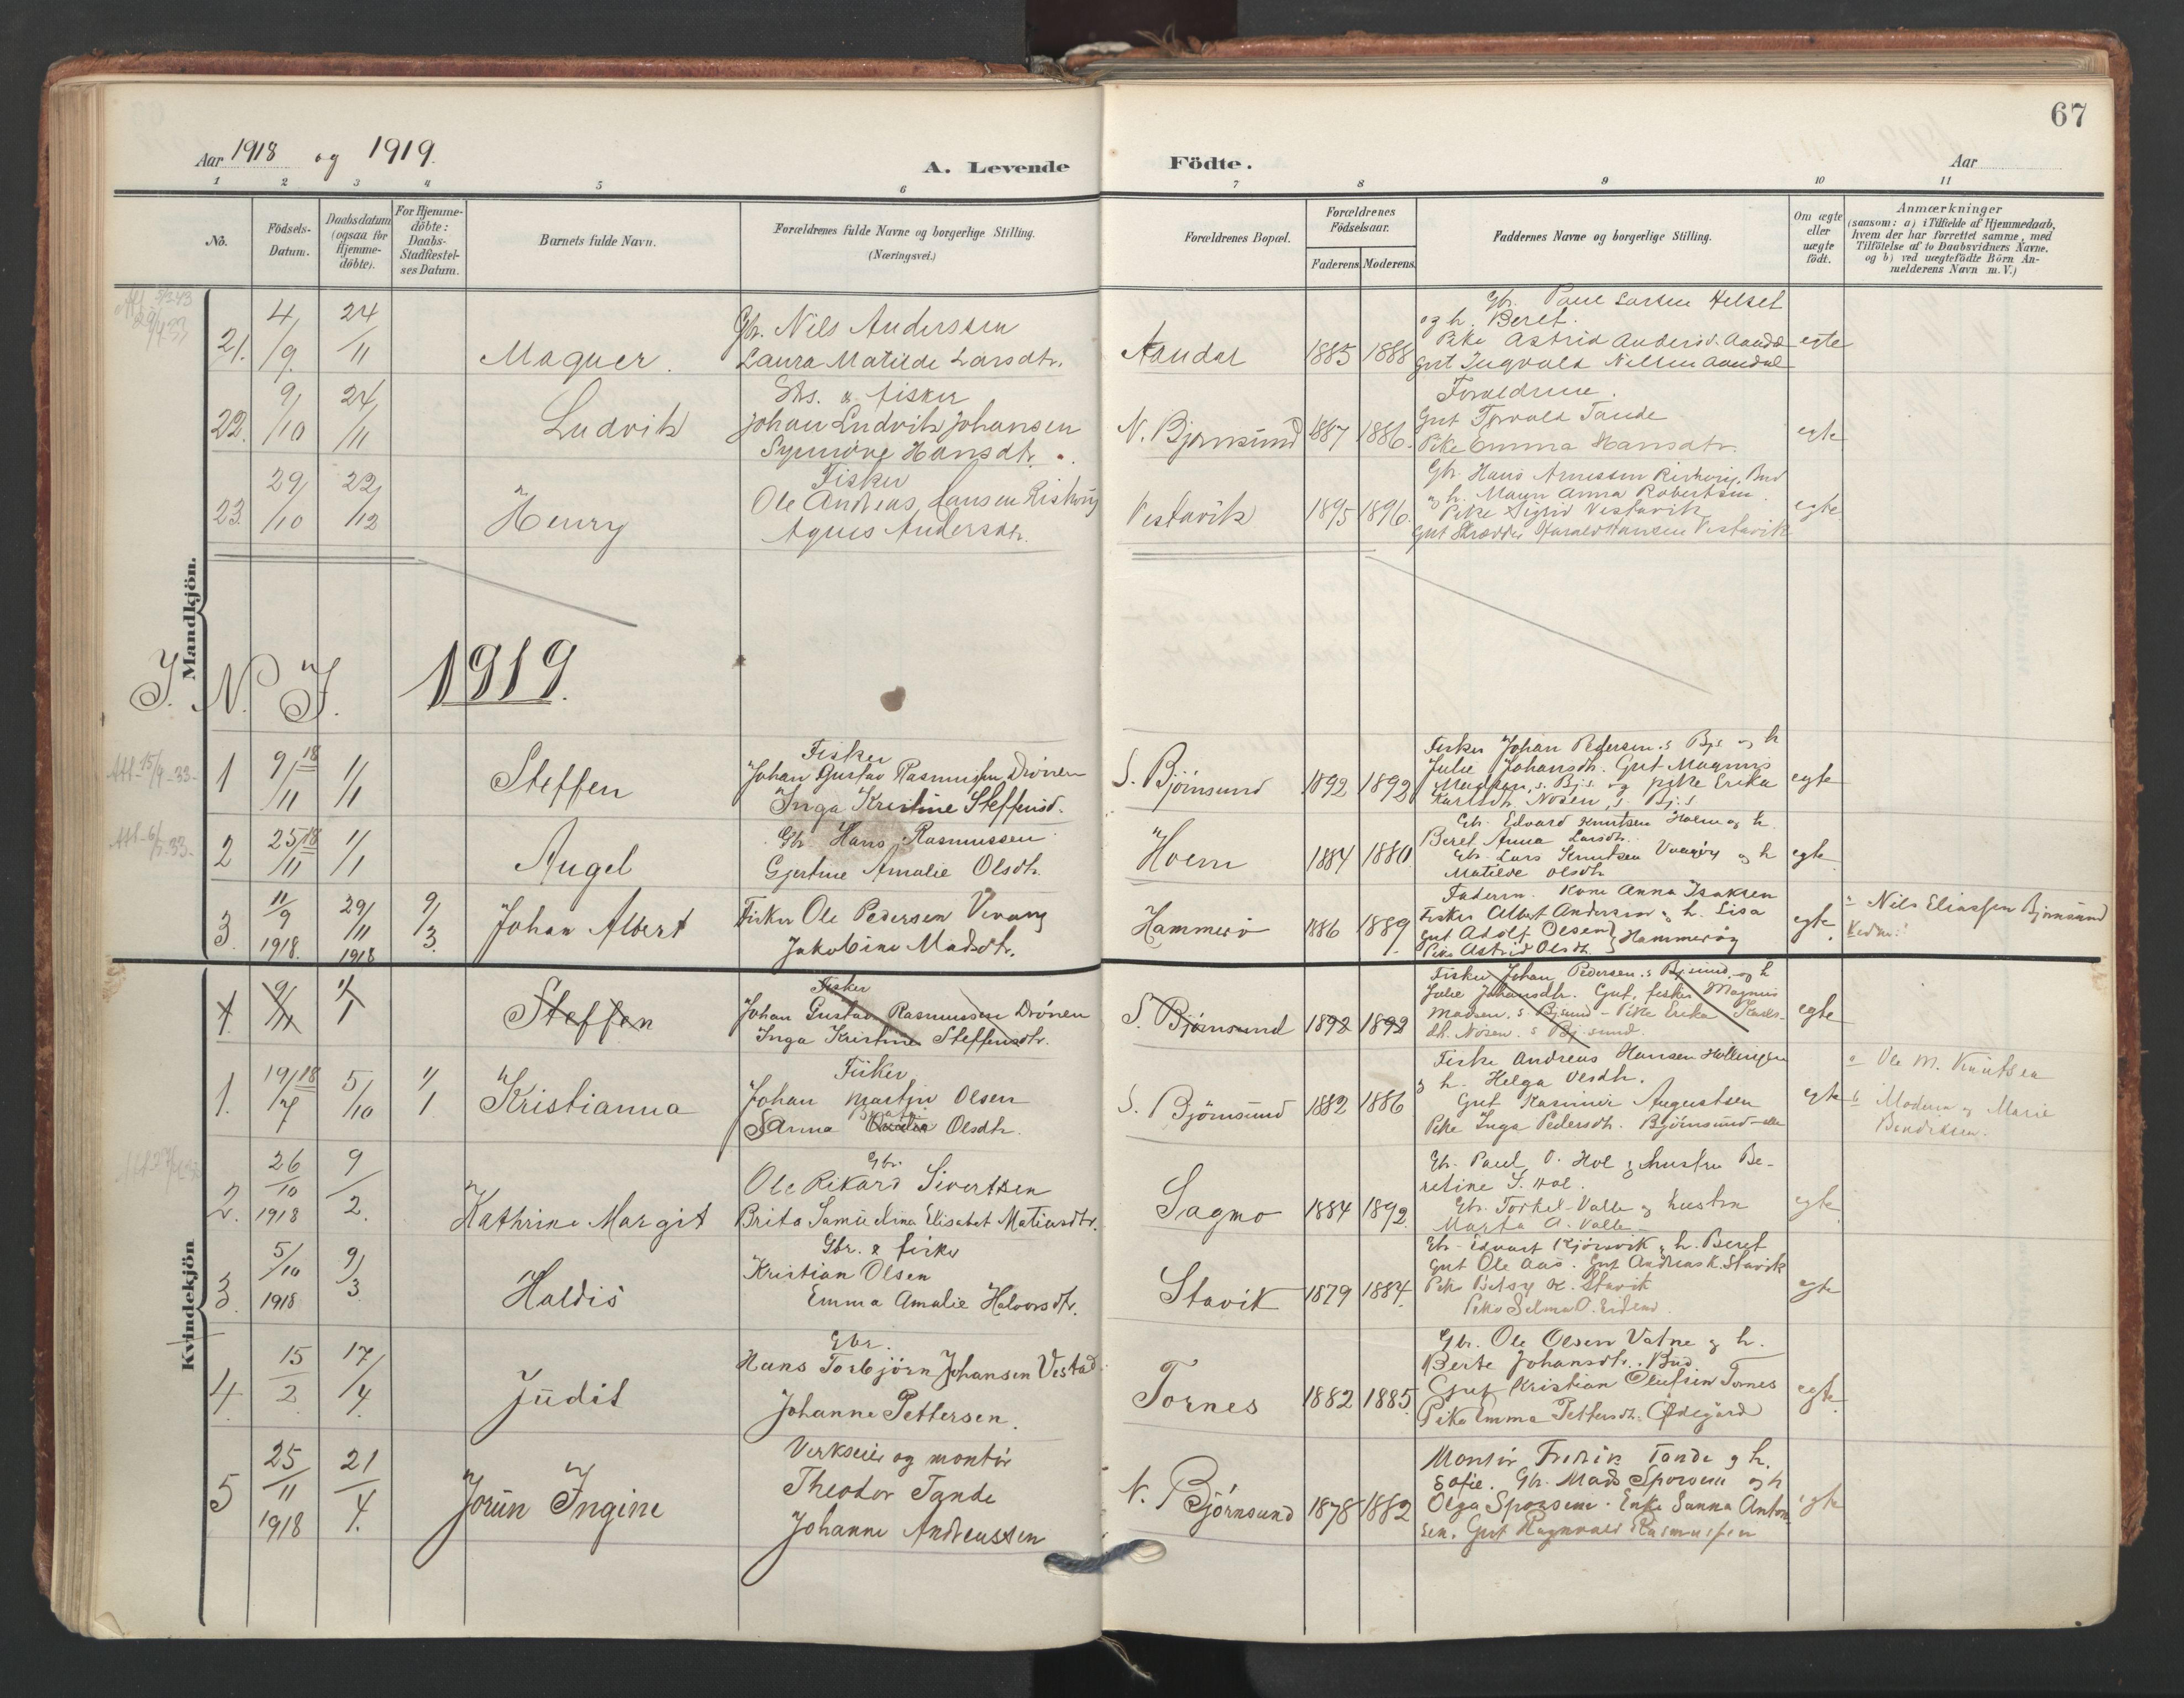 67
Aar 1918 og 1919.
A. Levende Födte.
Aar
1 2 3 4 5 6 7 8 9 10 11
No.
Födsels-Datum.
Daabsdatum (ogsaa for Hjemme-döbte).
For Hjemme-döbte: Daabs-Stadfæstel-ses Datum.
Barnets fulde Navn.
Forældrenes fulde Navne og borgerlige Stilling.
(Næringsvei.)
Forældrenes Bopæl.
Forældrenes Födselsaar.
Faderens. Moderens.
Faddernes Navne og borgerlige Stilling.
Om ægte eller uægte födt.
Anmærkninger
(saasom: a) i Tilfælde af Hjemmedaab,
hvem der har forrettet samme, med
Tilföielse af to Daabsvidners Navne.
og b) ved uægtefödte Börn An-
melderens Navn m. V.)
Mandkjön.
21. 4/9. 24/11 Magner. Gbr. Nils Anderssen
Laura Matilde Larsdtr. Aandal 1885 1888
Gbr. Paul Larsen Helset
og h. Beret.
Pike Astrid Andersd. Aandal
Gut Ingvald Nilsen Aandal
egte
22. 9/10 24/11 Ludvik
Johan Ludvik Johansen
Synnöve Hansdtr. N. Bjørnsund 1887 1886.
Forældrene.
Gut Torvald Tande
Pike Emma Hansdtr.
egte
23. 29/10 22/12 Henry Fisker
Ole Andreas Hansen
Agnes Andersdtr. Vestavik 1895 1896.
Gbr. Hans Arnessen Bud
og h. Anna Robertsen.
Pike Sigrid Vestavik
Gut Skrædder Harald Hansen Vestavik
egte.
I. N. J. 1919.
1 9/11 18 1/1 Steffen Fisker
Johan Gustav Rasmussen Drönen
Inga Kristine Steffensd. S. Björnsund 1892 1892
Fisker Johan Pedersen s. Bjs. og h
Julie Johansdtr. Gut Magnus
Madsen, s. Bj.s. og pike Erika
Karlsdtr. Nösen, s. Bj.s
egte
2 25/11 18 1/1 Angel Gbr. Hans Rasmussen
Gjertine Amalie Olsdtr. Hoem 1884 1880.
Gbr. Edvard Knutsen Hoem og h.
Beret Anna Larsdtr.
Gbr. Lars Knutsen og h
Matilde Olsdtr
egte
3. 11/9 1918. 29/11 1918 9/3. Johan Albert Fisker Ole Pedersen Vevang
Jakobine Madsdtr. Hammerö 1886 1889.
Faderen. Kone Anna Isaksen
Fisker Albert Andersen og h. Lisa
Gut Adolf Olsen
Pike Astrid Olsdtr. } Hammeröy
egte. Nils Eliassen Bjørnsund
Kvindekjön
1. 9/11 1/1 Steffen Fisker
Johan Gustav Rasmussen Drönen
Inga Kristine Steffensdtr. S. Björnsund 1892 1892
Fisker Johan Pedersen s. Bjsund. og h
Julie Johansdtr. Gut, fisker Magnus
Madsen, s. Bjsund - Pike Erika Karls-
dtr. Nösen. s. Bj.sund.
egte
1. 19/7 18 5/10 1/1 Kristianna Fisker
Johan Martin Olsen
Anna Olsdtr. S. Björnsund 1882 1886
Fisker Andreas Hansen
og h. Helga Olsdtr.
Gut Kasimir Augustsen
Pike Inga Pedersdtr. Björnsund alle
egte a Ole M. Knutsen
b Moderen og Marie
Bendiksen.
2. 26/10 1918 9/2. Kathrine Margit Gbr.
Ole Rikard Sivertsen
Brite Samueline Elisabet Matiasdtr. Sagmo 1884 1892.
Gbr. Paul O. Hol og hustru Be-
retine S. Hol.
Gbr. Torkel Valle og hustru
Marta A. Valle
egte
3. 5/10 1918 9/3. Haldis Gbr. & fisker
Kristian Olsen
Emma Amalie Halvorsdtr. Stavik 1879 1884.
Gbr. Edvart Kjörsvik og h. Beret
Gut Ole Aas. Gut Andreas K. Stavik
Pike Betsy K. Stavik
Pike Selma O. Eidem.
egte
4. 15/2 17/4. Judit Gbr.
Hans Torbjörn Johansen Vestad
Johanne Pettersen. Tornes 1882 1885.
Gbr. Ole Olsen Vatne og h.
Berte Johansdtr. Bud.
Gut Kristian Olufsen Tornes
Pike Emma Pettersdtr. Ødegård
egte.
5 25/11 1918 21/4. Jorun Ingine Verkseier og montör
Theodor Tande
Johanne Andreassen N. Björnsund 1878 1882
Montör Fredrik Tande og h.
Sofie. Gbr. Mads Sporsem og h
Olga Sporsem. Enke Sanna Anton-
sen. Gut Ragnvald Rasmussen
egte